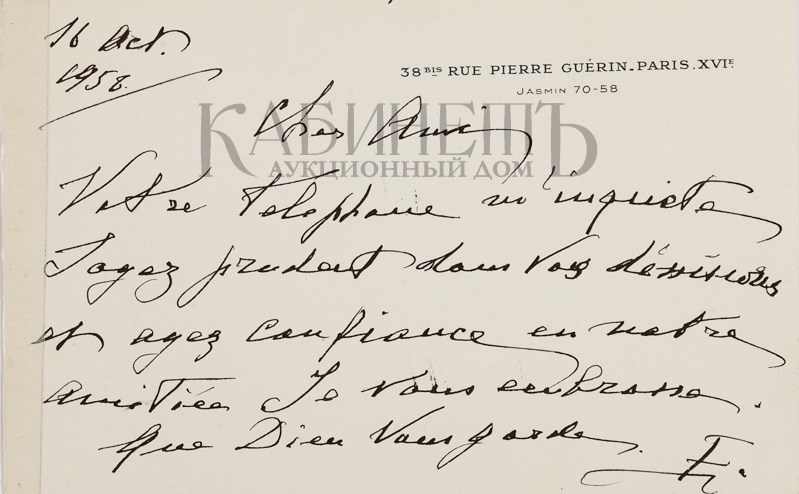 16 Oct.
1958.
38 BIS RUE PIERRE GUÉRIN_PARIS.XVIE
JASMIN 70-58
КАБИНЕТЪ
АУКЦИОННЫЙ ДОМ
Cher Ami,
Votre telephone m'inquiete
Soyez prudent dans vos déssisions
et ayez confiance en notre
amitiée Je vous embrasse.
Que Dieu Vous garde.